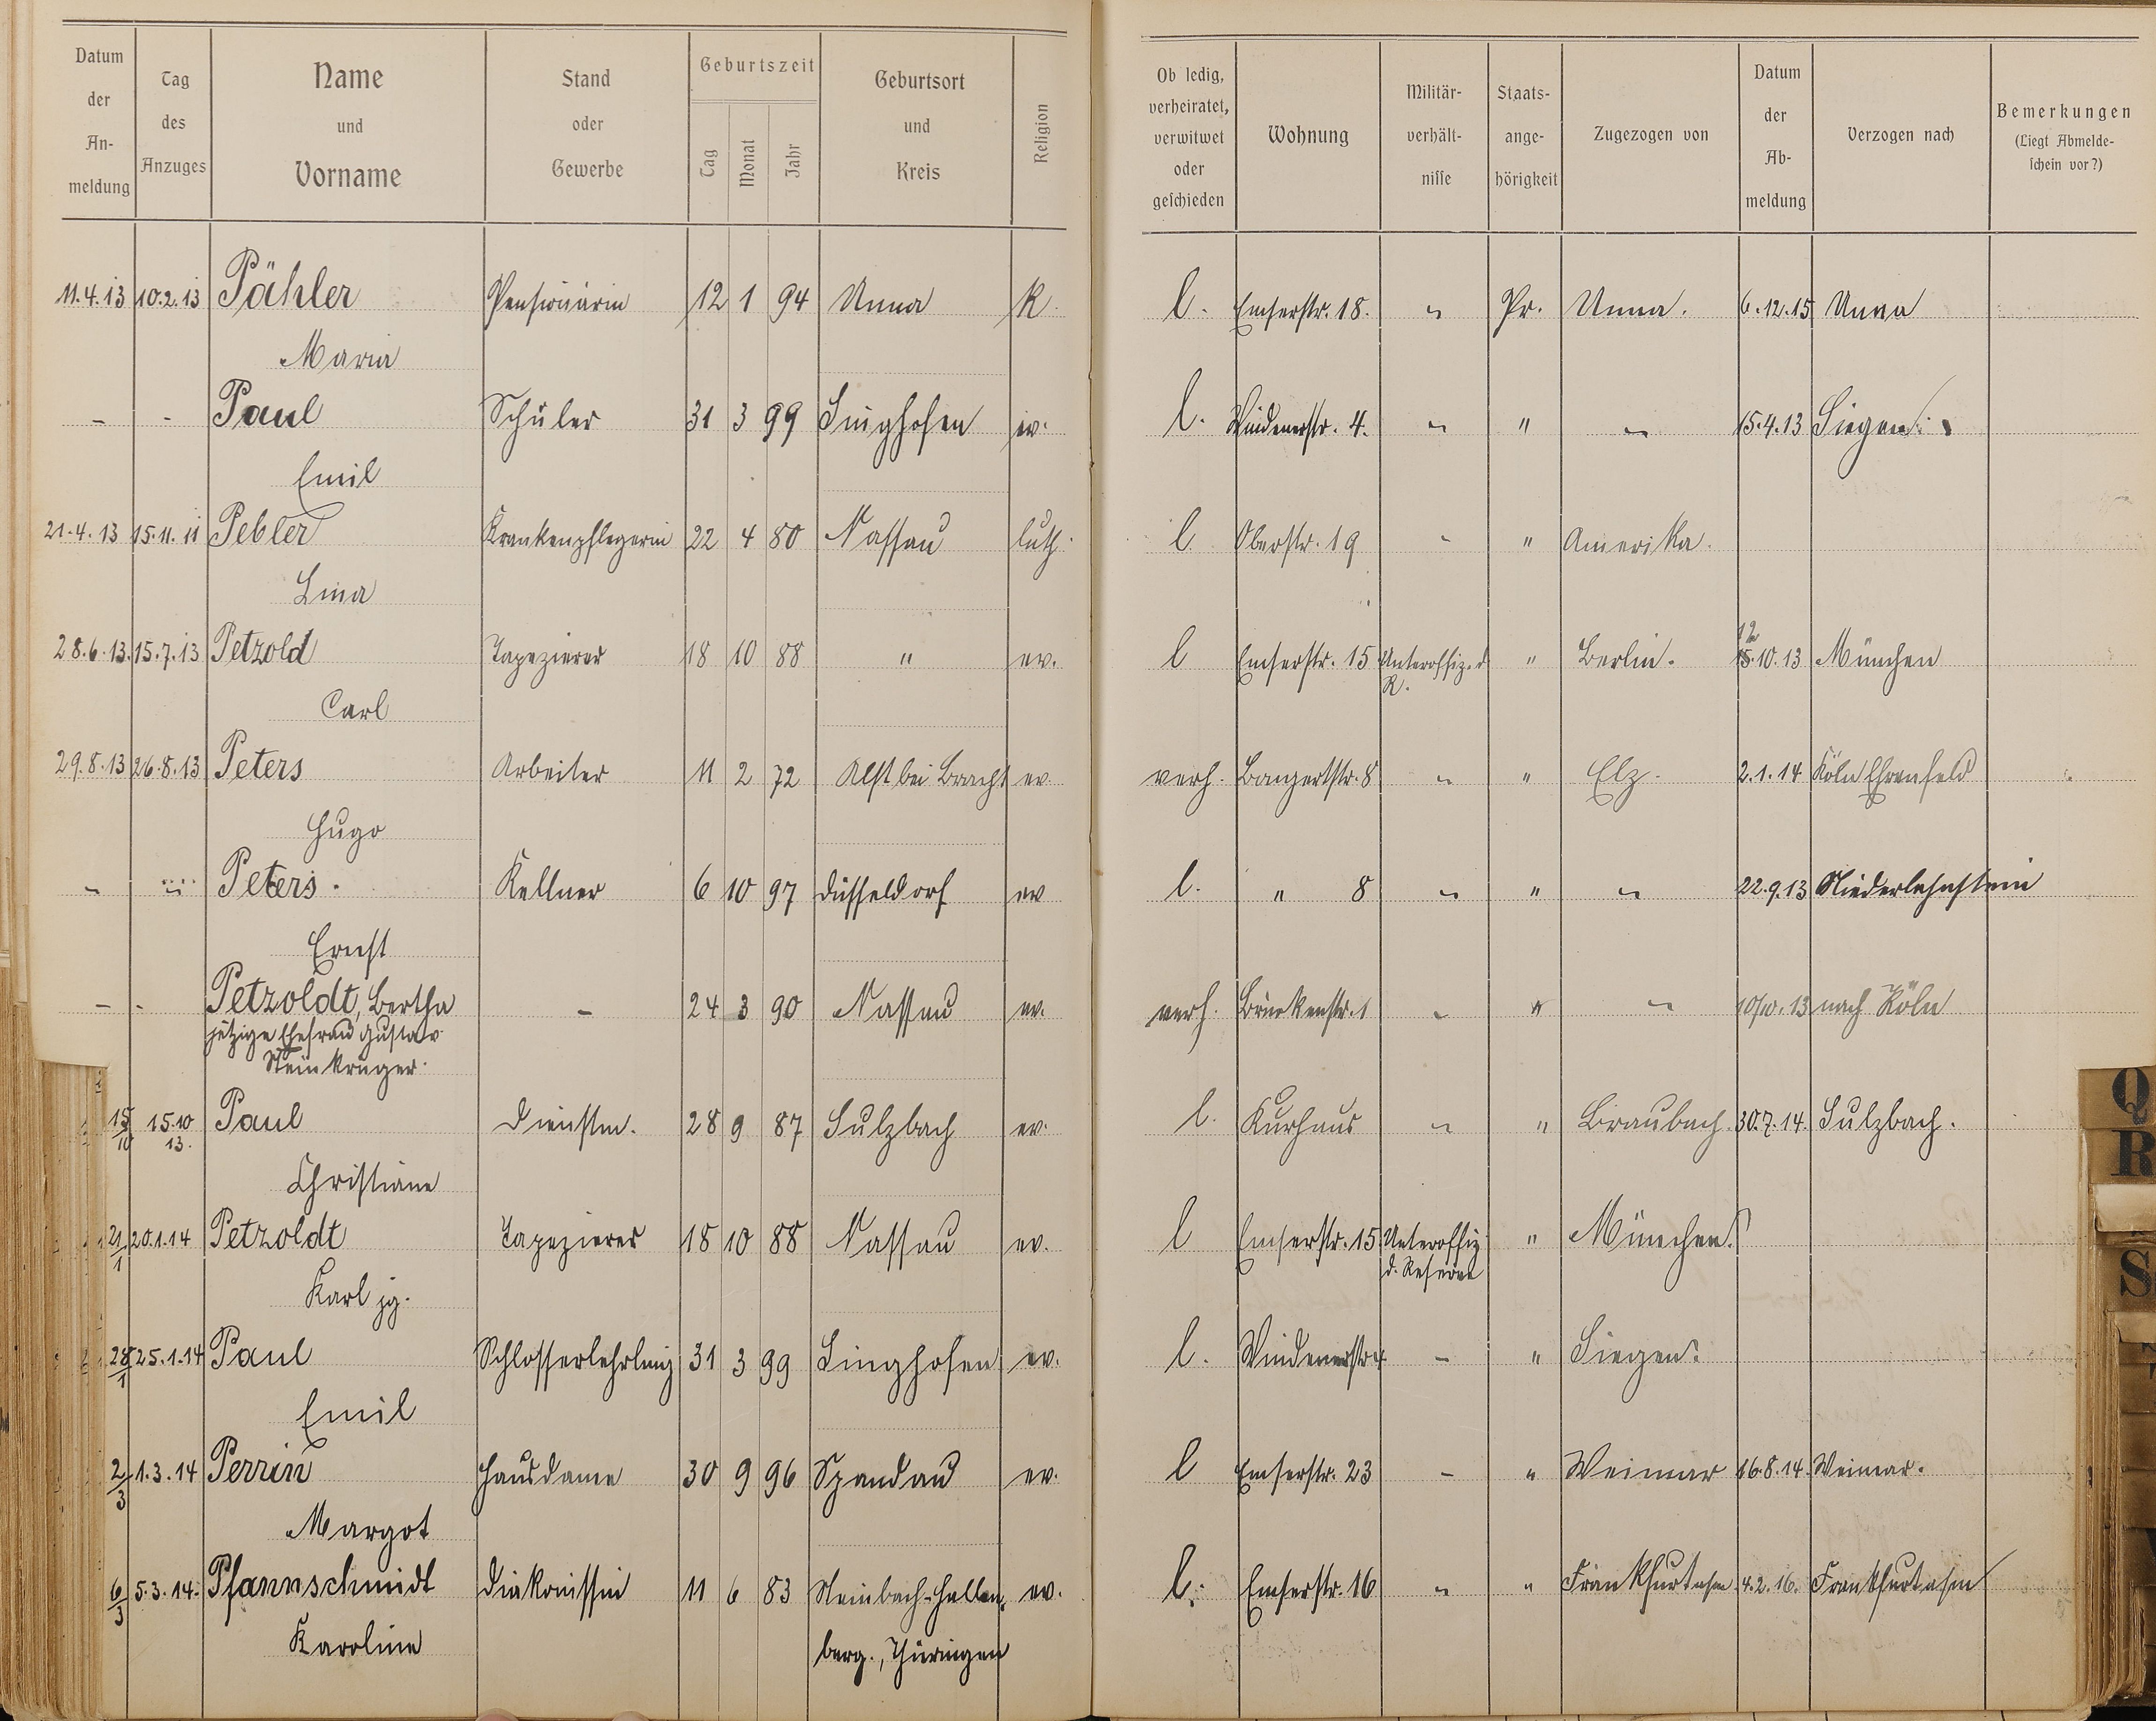 Datum der An-meldung | Tag des Anzuges | Name und Vorname | Stand oder Gewerbe | Geburtszeit Tag Monat Jahr | Geburtsort und Kreis | Religion | Ob ledig, verheiratet, verwitwet oder geschieden | Wohnung | Militär-verhält-nisse | Staats-ange-hörigkeit | Zugezogen von | Datum der Ab-meldung | Verzogen nach | Bemerkungen (Liegt Abmelde-schein vor?)
11.4.13 10.2.13 Pähler Pensionärin 12 1 94 Unna K. l. Emserstr. 18. " Pr. Unna. 6.12.15 Unna
Maria
- - Paul Schüler 31 3 99 Singhofen ev. l. Windenerstr. 4. " " " 15.4.13 Siegen.
Emil
21.4.13 15.11.11 Pebler Krankenpflegerin 22 4 80 Nassau luth. l. Oberstr. 19 - " Amerika.
Lina
28.6.13. 15.7.13 Petzold Tapezierer 18 10 88 " ev. l Emserstr. 15 Unteroffiz. d. " Berlin. 12 15.10.13 München
R.
Carl
29.8.13 26.8.13 Peters Arbeiter 11 2 72 Alst bei Bracht ev. verh. Bangertstr. 8 " " Elz. 2.1.14 Köln Ehrenfeld
Hugo
" " Peters. Kellner 6 10 97 Düsseldorf ev l. " 8 " " " 22.9.13 Niederlahnstein
Ernst
- - Petzoldt, Bertha - 24 3 90 Nassau ev. verh. Brückenstr. 1 " " " 10/10.13 nach Köln
jetzige Ehefrau Gustav
Steinkrüger.
15/10 15.10 Paul Dienstm. 28 9 87 Sulzbach ev. l. Kurhaus " " Braubach. 30.7.14. Sulzbach.
13.
Christiane
21/1 20.1.14 Petzoldt Tapezierer 18 10 88 Nassau ev. l Emserstr. 15 Unteroffiz. " München.
d. Reserve
Karl jg.
28/1 25.1.14 Paul Schlosserlehrling 31 3 99 Singhofen ev. l. Windenerstr 4 - " Siegen.
Emil
2/3 1.3.14 Perrin Hausdame 30 9 96 Spandau ev. l Emserstr. 23 - " Weimar 16.8.14. Weimar.
Margot
6/3 5.3.14. Pfannschmidt Diakonissin 11 6 83 Steinbach-Hallen- ev. l. Emserstr. 16 " " Frankfurt a/m 4.2.16. Frankfurt a/m
Karoline berg., Thüringen
Q
R
S